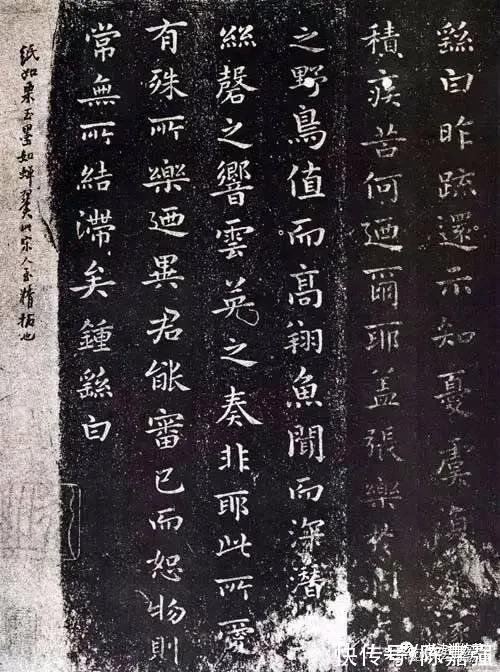 繇白昨疏還示知憂虞復深
積疾苦何迺爾耶盖張樂於洞
之野鳥值而高翔魚聞而深潛
絲磬之響雲英之奏非耶此所愛
有殊所樂迺異君能審己而恕物則
常無所結滯矣鍾繇白
紙如栗玉墨如蟬翼此宋人至精搨也
快传号/陈嘉强